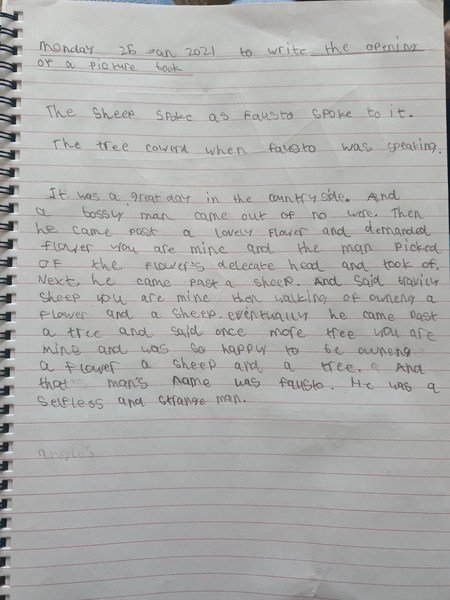 monday 25 Jan 2021 to write the opening
of a picture book
The Sheep Spoke as Fausto spoke to it.
The tree cowerd when fausto was speaking.
It was a great day in the country side. And
a bossy man came out of no were. Then
he came past a lovely flower and demanded
flower you are mine and the man picked
of the flower's delecate head and took of.
Next, he came past a sheep. And said bravily
sheep you are mine then walking of oweneg a
flower and a sheep. eventually he came past
a tree and said once more tree you are
mine and was so happy to be oweneg
a flower a sheep and a tree. And
that's man's name was fausto. He was a
selfless and strange man.
angles